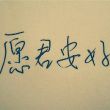 愿君安好